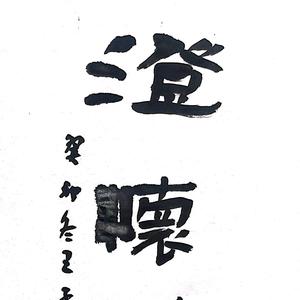 澄懷
癸卯冬王